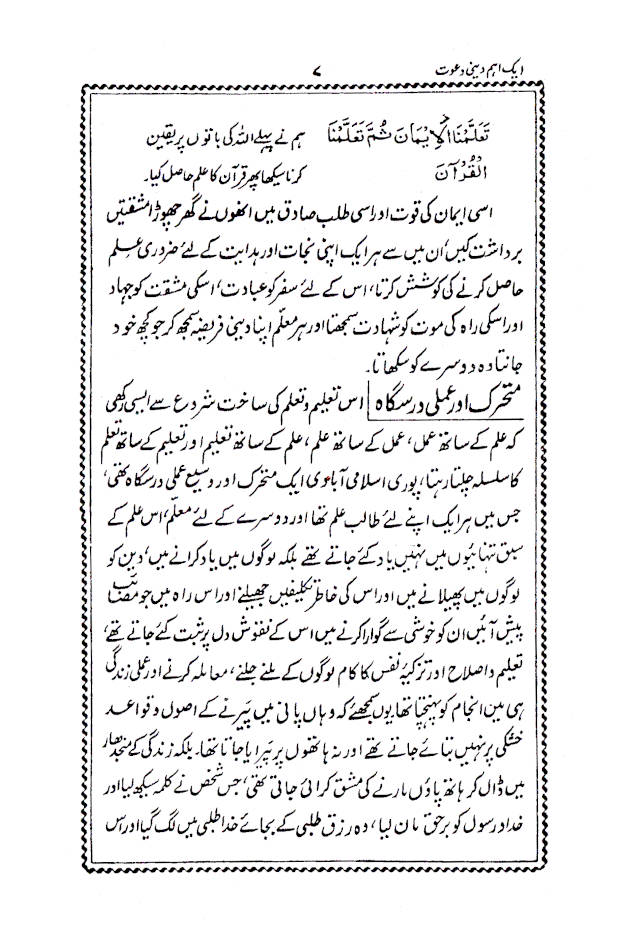 ایک اہم دینی دعوت ۷
تَعَلَّمْنَا الْاِیْمَانَ ثُمَّ تَعَلَّمْنَا ہم نے پہلے اللہ کی باتوں پر یقین
الْقُرْآنَ کرنا سیکھا پھر قرآن کا علم حاصل کیا۔
اسی ایمان کی قوت اور اسی طلب صادق میں انھوں نے گھر چھوڑا مشقتیں
برداشت کیں، ان میں سے ہر ایک اپنی نجات اور ہدایت کے لئے ضروری علم
حاصل کرنے کی کوشش کرتا، اس کے لئے سفر کو عبادت، اسکی مشقت کو جہاد
اور اسکی راہ کی موت کو شہادت سمجھتا اور ہر معلّم اپنا دینی فریضہ سمجھ کر جو کچھ خود
جانتا وہ دوسرے کو سکھاتا۔
متحرک اور عملی درسگاہ اس تعلیم و تعلم کی ساخت شروع سے ایسی رکھی
کہ علم کے ساتھ عمل، عمل کے ساتھ علم، علم کے ساتھ تعلیم اور تعلیم کے ساتھ تعلم
کا سلسلہ چلتا رہتا، پوری اسلامی آبادی ایک متحرک اور وسیع عملی درسگاہ تھی،
جس میں ہر ایک اپنے لئے طالب علم تھا اور دوسرے کے لئے معلم، اس علم کے
سبق تنہائیوں میں نہیں یاد کئے جاتے تھے بلکہ لوگوں میں یاد کرانے میں، دین کو
لوگوں میں پھیلانے میں اور اس کی خاطر تکلیفیں جھیلنے اور اس راہ میں جو مصائب
پیش آئیں ان کو خوشی سے گوارا کرنے میں اس کے نقوش دل پر ثبت کئے جاتے تھے،
تعلیم و اصلاح اور تزکیۂ نفس کا کام لوگوں کے ملنے جلنے، معاملہ کرنے اور عملی زندگی
ہی میں انجام کو پہنچتا تھا یوں سمجھئے کہ وہاں پانی میں پَیرنے کے اصول و قواعد
خشکی پر نہیں بتائے جاتے تھے اور نہ ہاتھوں پر پَیرایا جاتا تھا۔ بلکہ زندگی کے منجدھار
میں ڈال کر ہاتھ پاؤں مارنے کی مشق کرائی جاتی تھی، جس شخص نے کلمہ سیکھ لیا اور
خدا و رسول کو برحق مان لیا، وہ رزق طلبی کے بجائے خدا طلبی میں لگ گیا اور اس